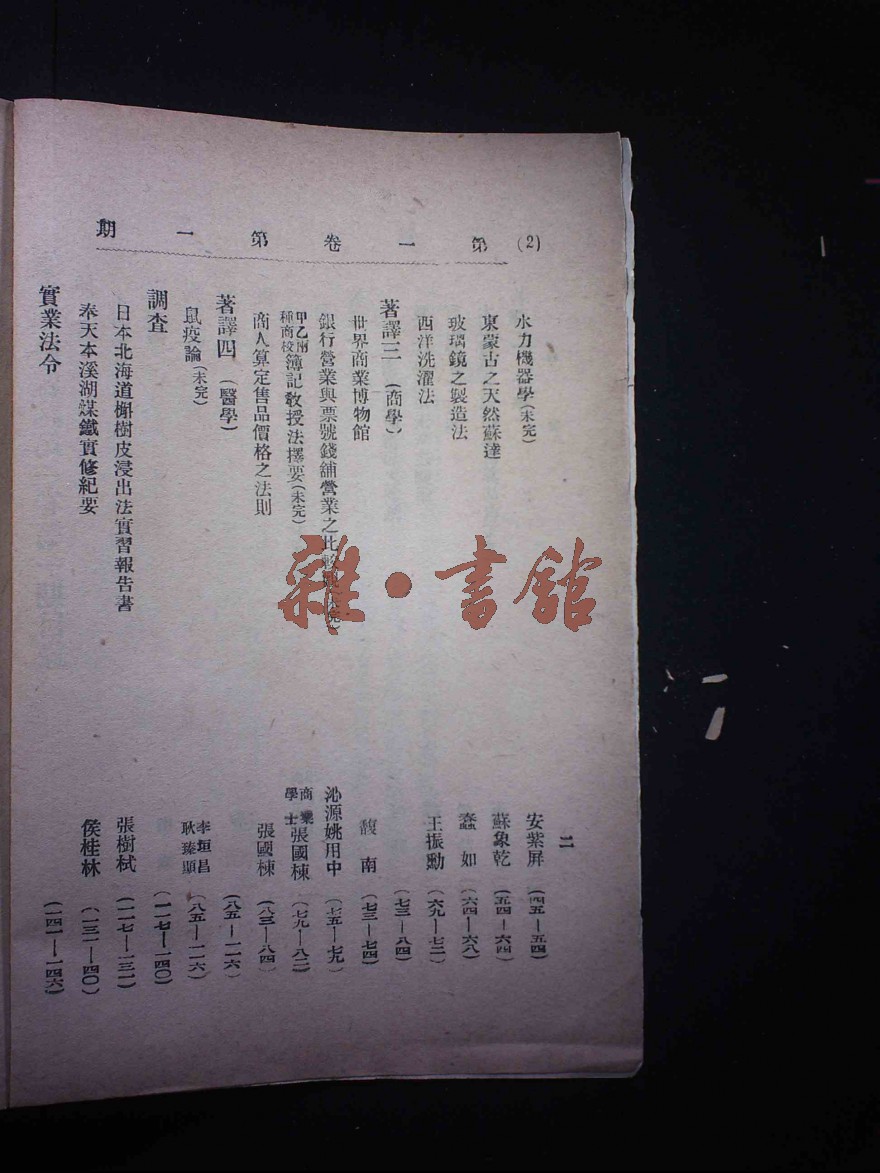 (2) 第一卷第一期
二
水力機器學(未完) 安紫屏 (四五—五四)
東蒙古之天然蘇達 蘇象乾 (五四—六四)
玻璃鏡之製造法 蠢如 (六四—六八)
西洋洗濯法 王振勳 (六九—七二)
著譯三 (商學) (七三—八四)
世界商業博物館 馥南 (七三—七四)
銀行營業與票號錢舖營業之比較觀(未完) 沁源姚用中 (七五—七九)
甲乙兩種商校簿記教授法擇要(未完) 商業學士張國棟 (七九—八二)
商人算定售品價格之法則 張國棟 (八三—八四)
著譯四 (醫學) (八五—一一六)
鼠疫論(未完) 李垣昌 耿臻顯 (八五—一一六)
調查 (一一七—一四〇)
日本北海道槲樹皮浸出法實習報告書 張樹栻 (一一七—一三一)
奉天本溪湖煤鐵實修紀要 侯桂林 (一三一—一四〇)
實業法令 (一四一—一四六)
雜·書館